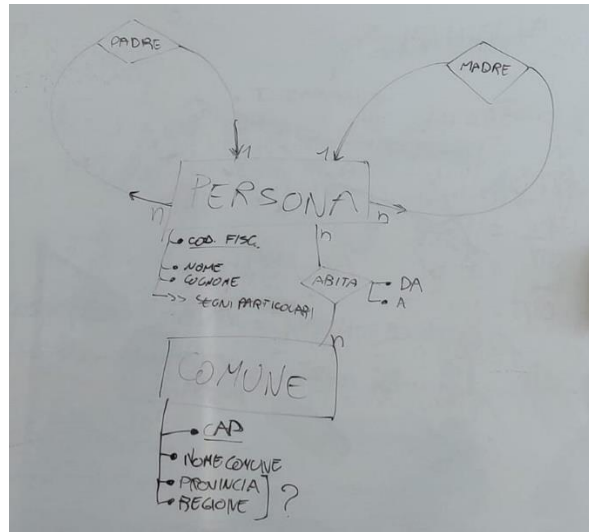 PADRE
MADRE
1
1
PERSONA
n
n
COD. FISC.
n
NOME
COGNOME
SEGNI PARTICOLARI
ABITA
DA
A
n
COMUNE
CAP
NOME COMUNE
PROVINCIA
REGIONE
?